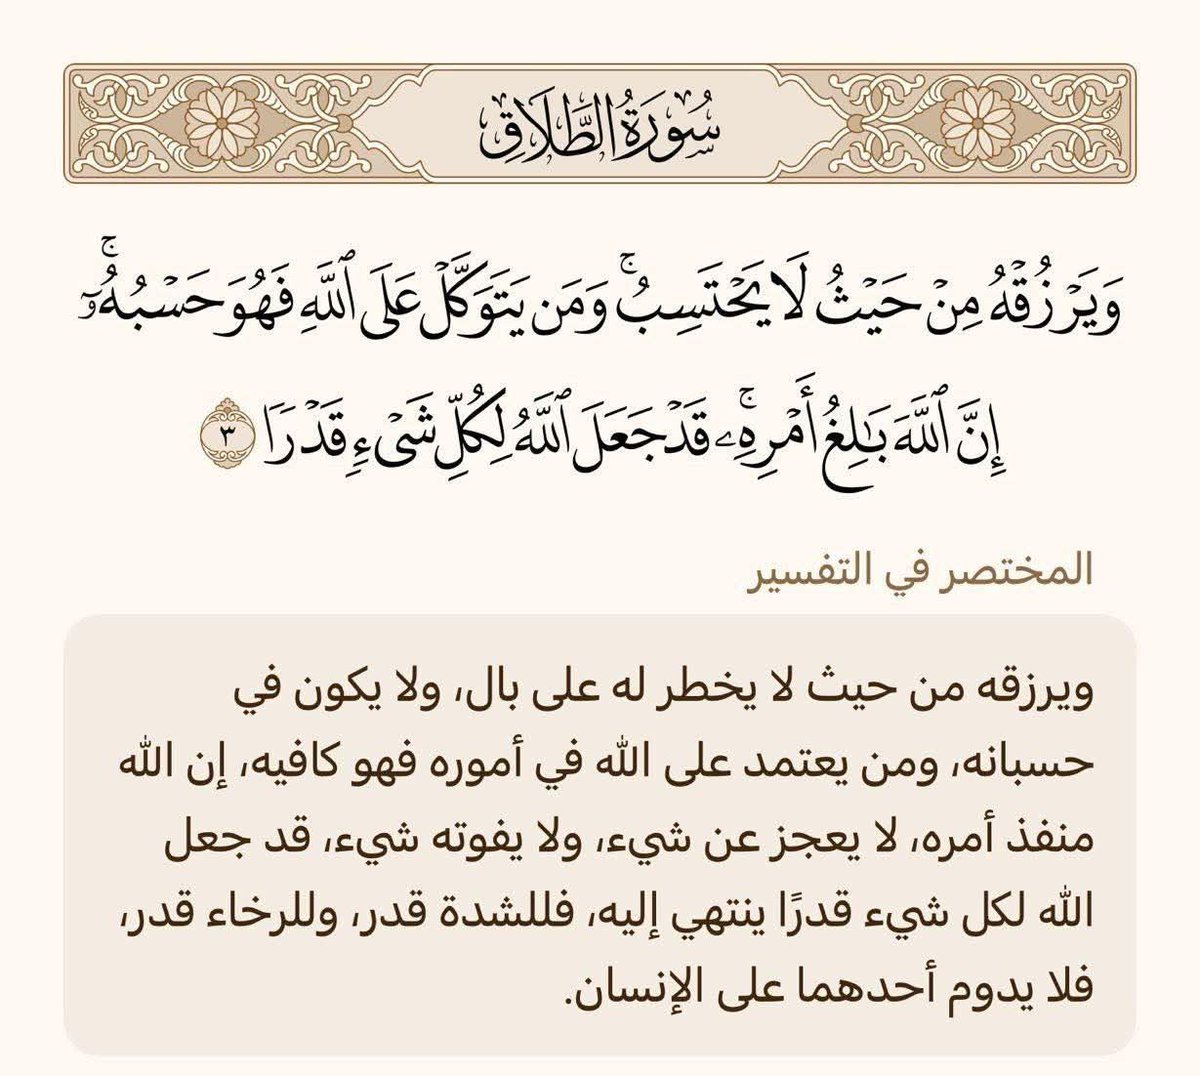 سُورَةُ الطَّلَاقِ
وَيَرۡزُقۡهُ مِنۡ حَيۡثُ لَا يَحۡتَسِبُۚ وَمَن يَتَوَكَّلۡ عَلَى ٱللَّهِ فَهُوَ حَسۡبُهُۥٓۚ
إِنَّ ٱللَّهَ بَٰلِغُ أَمۡرِهِۦۚ قَدۡ جَعَلَ ٱللَّهُ لِكُلِّ شَيۡءٖ قَدۡرٗا ٣
المختصر في التفسير
ويرزقه من حيث لا يخطر له على بال، ولا يكون في
حسبانه، ومن يعتمد على الله في أموره فهو كافيه، إن الله
منفذ أمره، لا يعجز عن شيء، ولا يفوته شيء، قد جعل
الله لكل شيء قدرًا ينتهي إليه، فللشدة قدر، وللرخاء قدر،
فلا يدوم أحدهما على الإنسان.